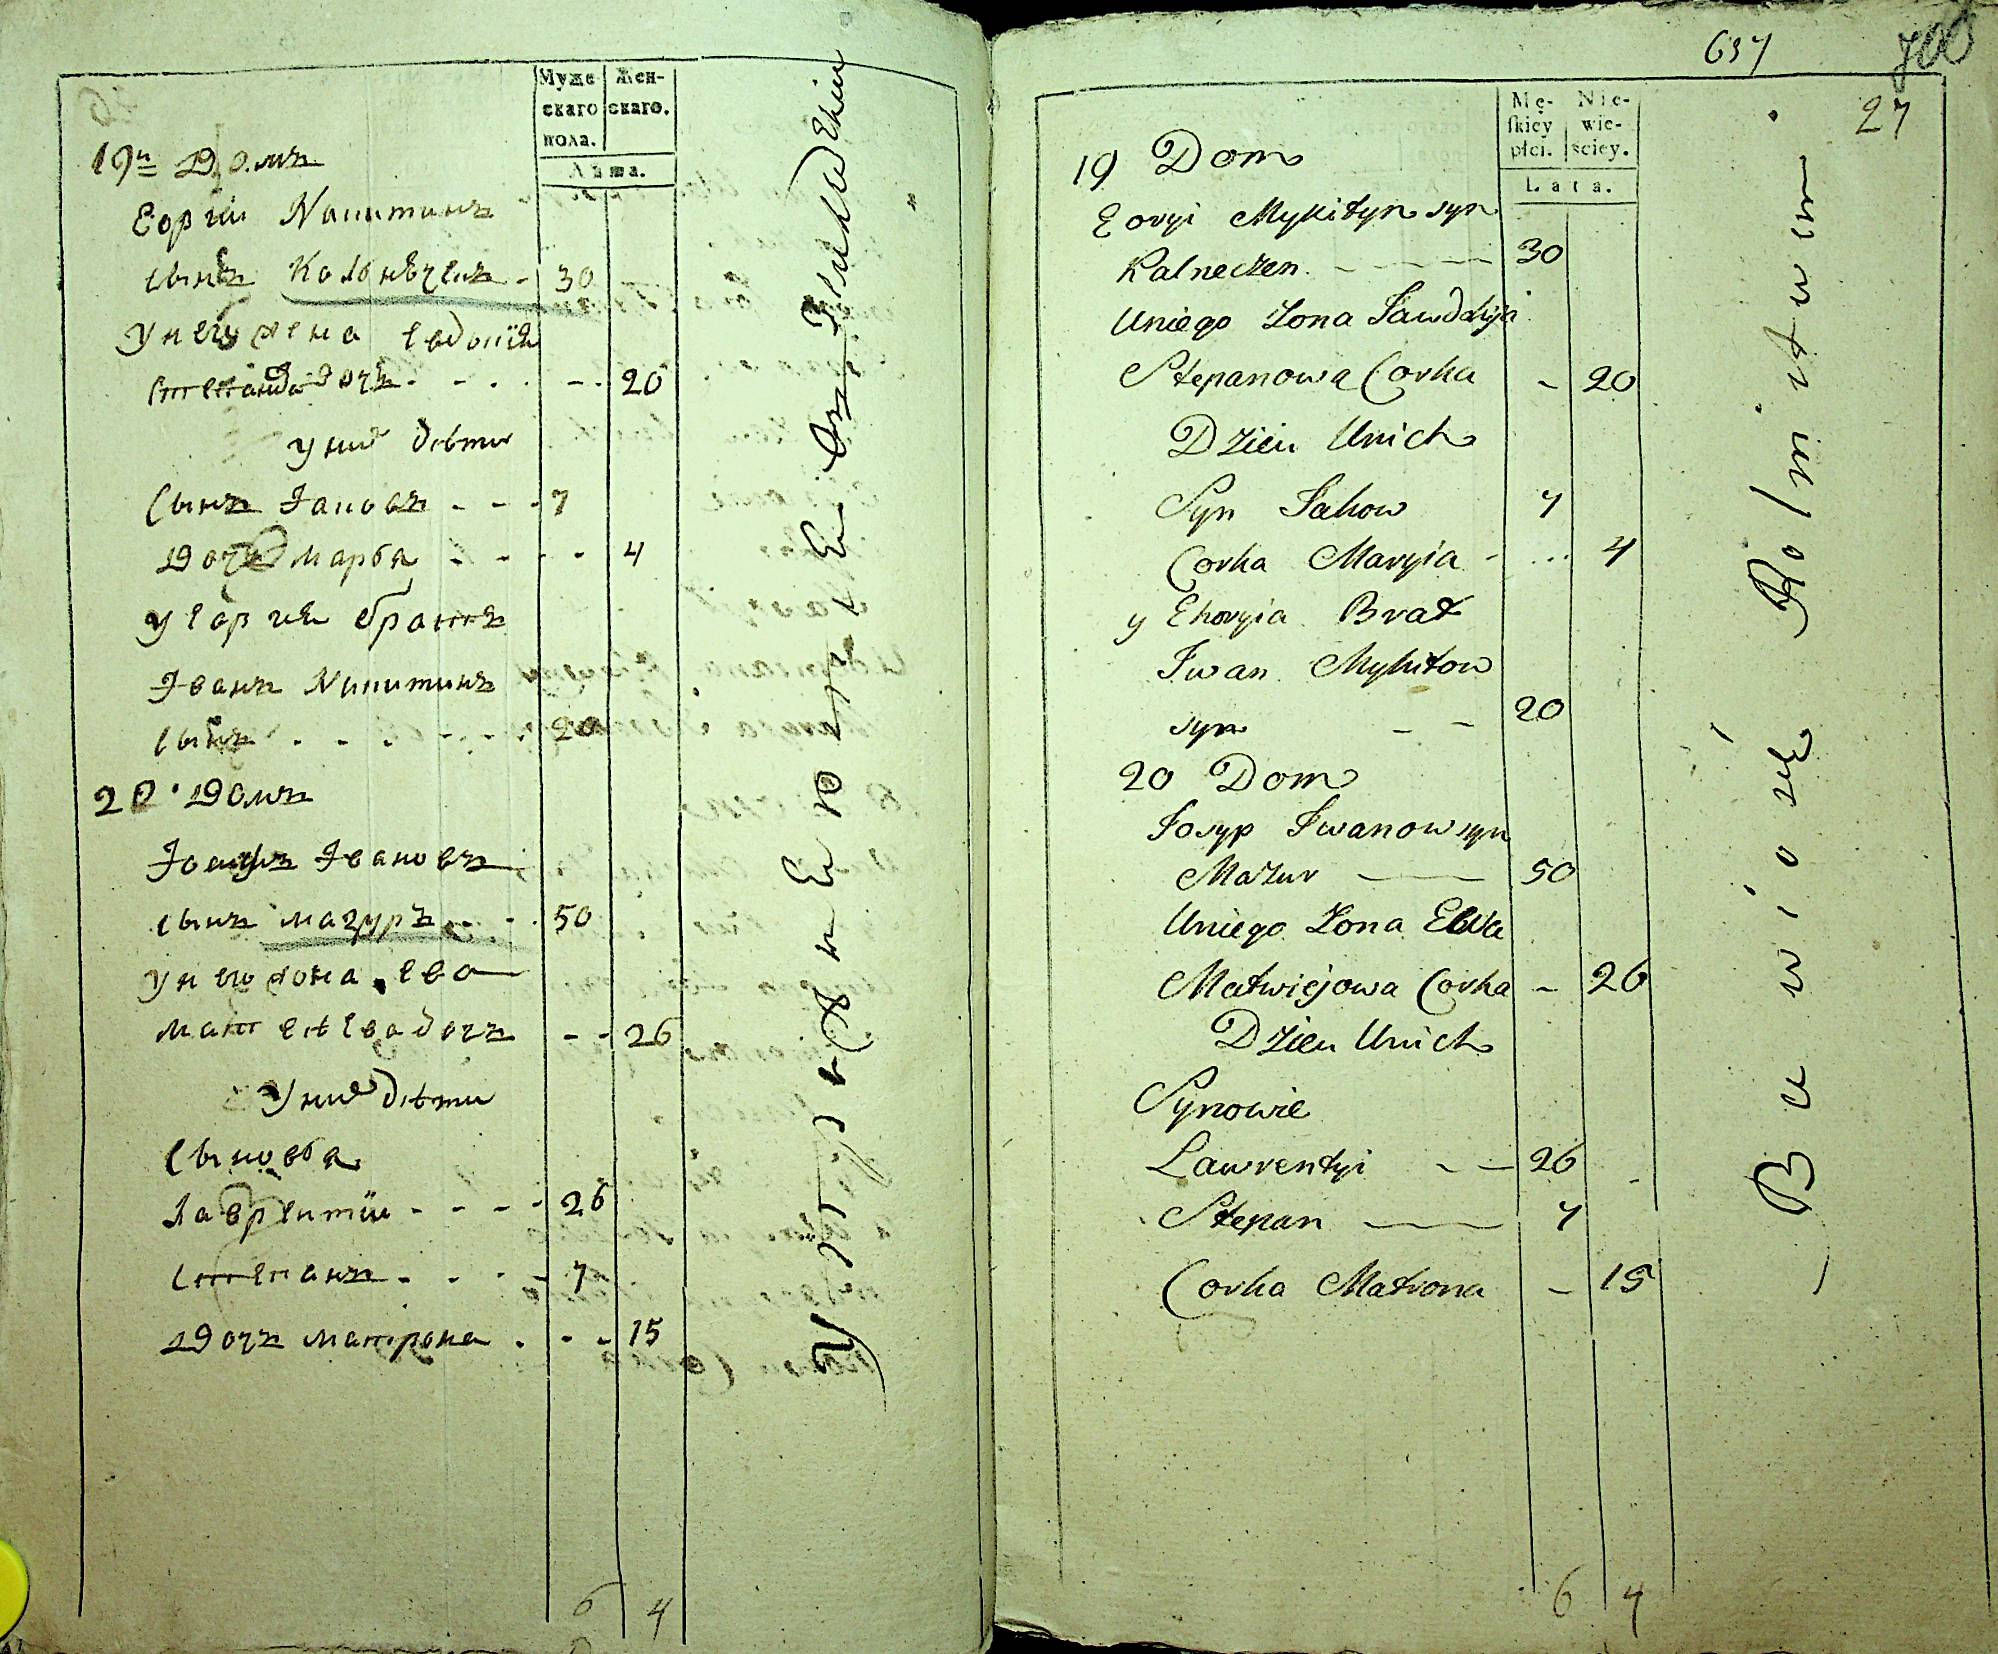 Муже
скаго
пола.
Жен-
скаго.
Лѣта.
19й Домъ
Еоргій Никитинъ
сынъ Кольнѣченъ - 30
У него жена Евдокія
Степанова дочь - - - 20
У них дѣти
Сынъ Іаковъ - - - 7
Дочь Марія - - - - 4
У Еоргія братъ
Іванъ Никитинъ
сынъ - - - - - 20
20 Домъ
Іосипъ Івановъ
сынъ Мазуръ - - 50
У него жона Ева
Матвѣева дочь - - 26
У них дѣти
Сыновья
Лаврентій - - - - 26
Степанъ - - - - 7
Дочь Матрона - - - 15
6 4
637
700
27
Mę-
skiey
płci.
Nie-
wie-
sciey.
Lata.
19 Dom
Eoryi Mykityn syn
Kalneczen - - - - 30
Uniego Zona Jawdokija
Stepanowa Corka - 20
Dzieu Unich
Syn Jakow 7
Corka Maryia - ... 4
y Ehoryia Brat
Iwan Mykitow
syn - - 20
20 Dom
Josyp Iwanow syn
Mazur — 50
Uniego Zona Ewa
Matwiejowa Corka - 26
Dzieu Unich
Synowie
Lawrentyi - — 26
Stepan — 7
Corka Matrona - 15
Bawiące Rolnictwem
6 4